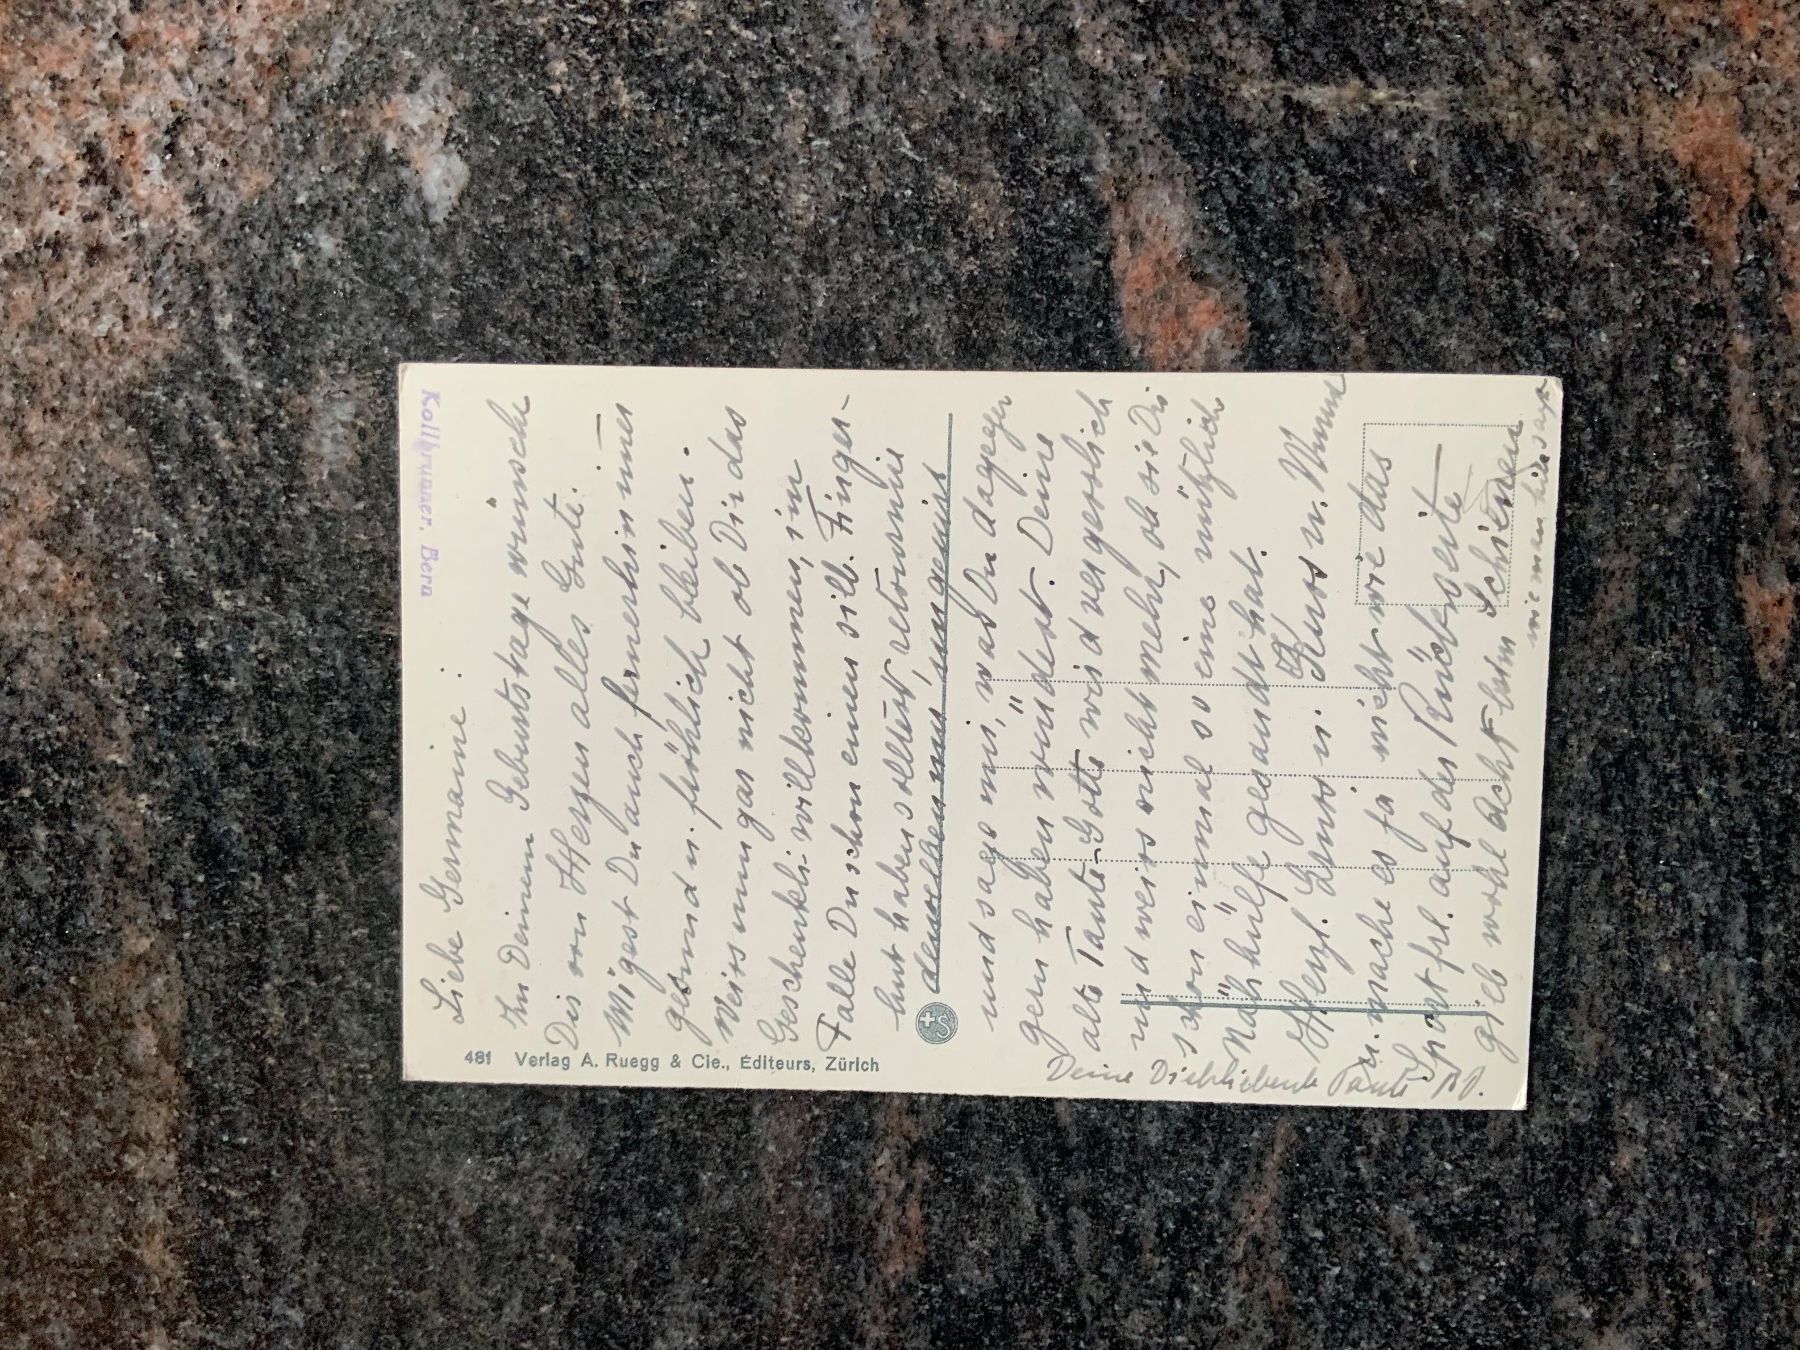 Liebe Germaine.
Zu Deinem Geburtstage wünsche
Dir von Herzen alles Gute.
Mögest Du auch fernerhin immer
gesund u. fröhlich bleiben.
Weiss nun gar nicht ob Dir das
Geschenkli willkommen, im
Falle Du schon einen silb. Finger-
hut haben solltest, retourniere
denselben nur, ungeniert
und sage mir, was Du dagegen
gern haben würdest. Deine
alte Tante Gotte wird vergesslich
und weiss nicht mehr, ob sie Dir
schon einmal so eine nützliche
Nähhülfe gesandt hat.
Herzl. Gruss u. Kuss v. Mumm
u. mache es ja nicht wie das
Sportfrl. auf der Rückseite
gieb wohl Acht beim Schienen
wie man hier sagt
Deine Dichliebende Tante M.
Kollbrunner, Bern
481 Verlag A. Ruegg & Cie., Éditeurs, Zürich